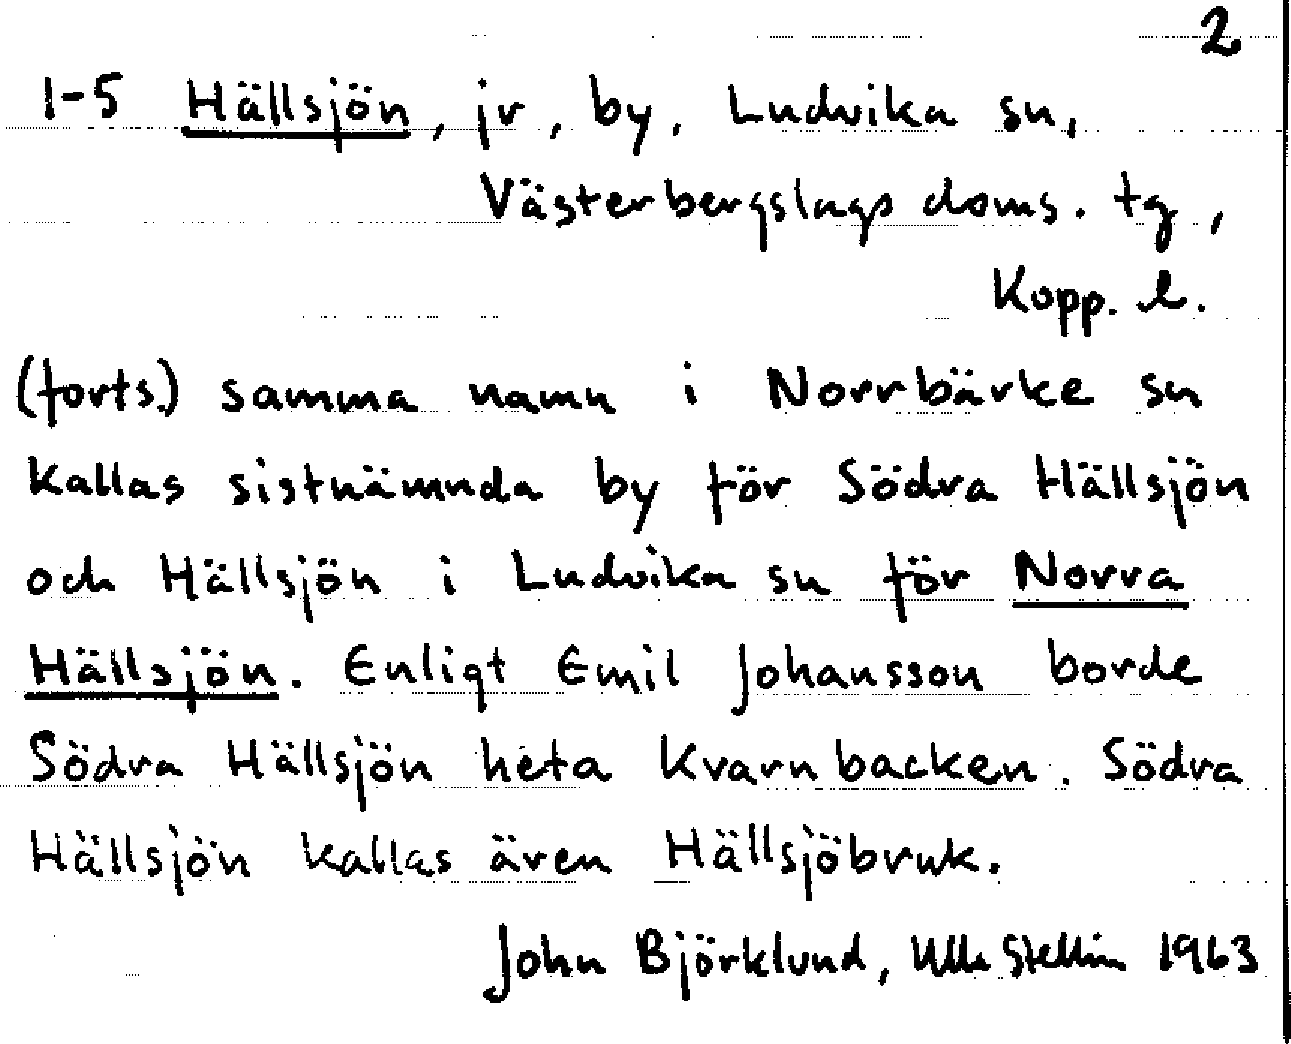 2
1-5 Hällsjön, jr, by, Ludvika sn,
Västerbergslags doms. tg,
Kopp. l.
(forts.) samma namn i Norrbärke sn
kallas sistnämnda by för Södra Hällsjön
och Hällsjön i Ludvika sn för Norra
Hällsjön. Enligt Emil Johansson borde
Södra Hällsjön heta Kvarnbacken. Södra
Hällsjön kallas även Hällsjöbruk.
John Björklund, Ulla Stellin 1963